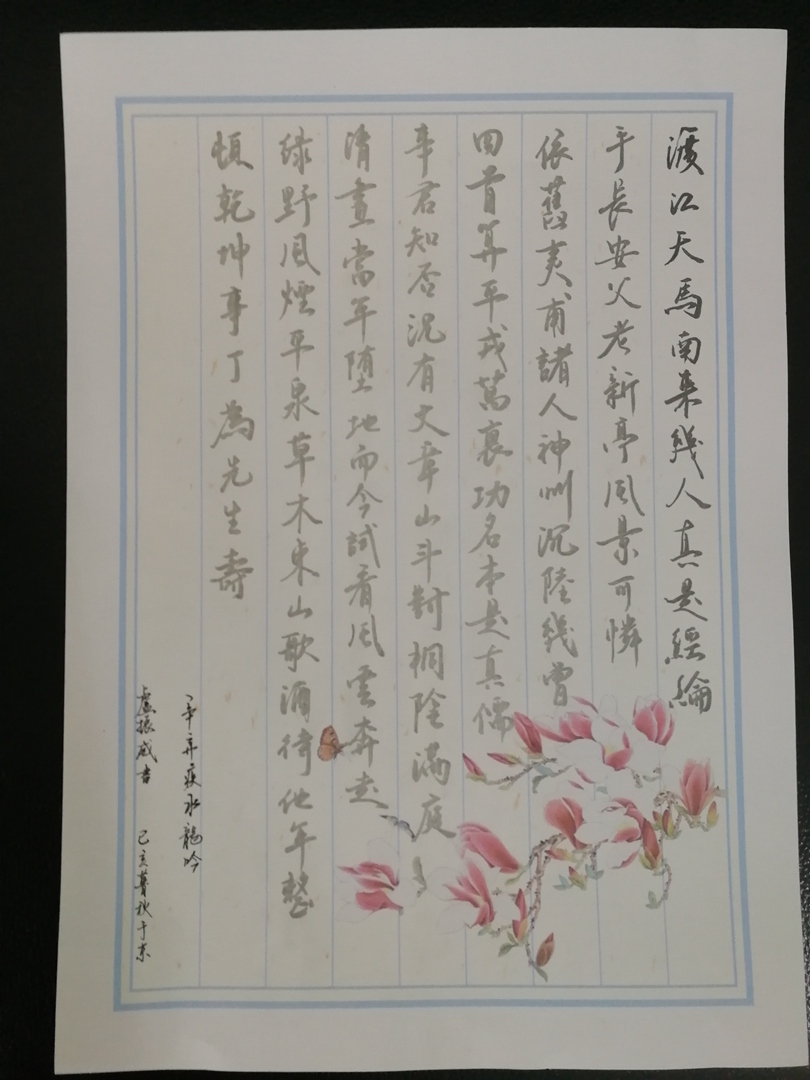 渡江天馬南来幾人真是經綸
手長安父老新亭風景可憐
依舊夷甫諸人神州沉陸幾曾
回首算平戎萬裏功名本是真儒
事君知否況有文章山斗對桐陰滿庭
清晝當年墮地而今試看風雲奔走
綠野風煙平泉草木東山歌酒待他年整
頓乾坤事了為先生壽
辛弃疾水龍吟
盧振 己亥暮秋于京